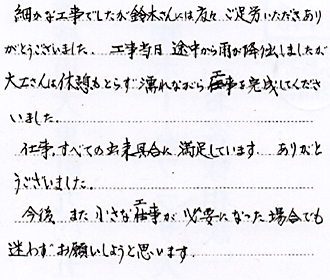 細かな工事でしたが鈴木さんには度々ご足労いただきあり
がとうございました。工事当日途中から雨が降出しましたが
大工さんは休憩もとらず濡れながら工事を完成してくださ
いました。
仕事、すべての出来具合に満足しています ありがと
うございました。
今後 また小さな工事が必要になった場合でも
迷わずお願いしようと思います。